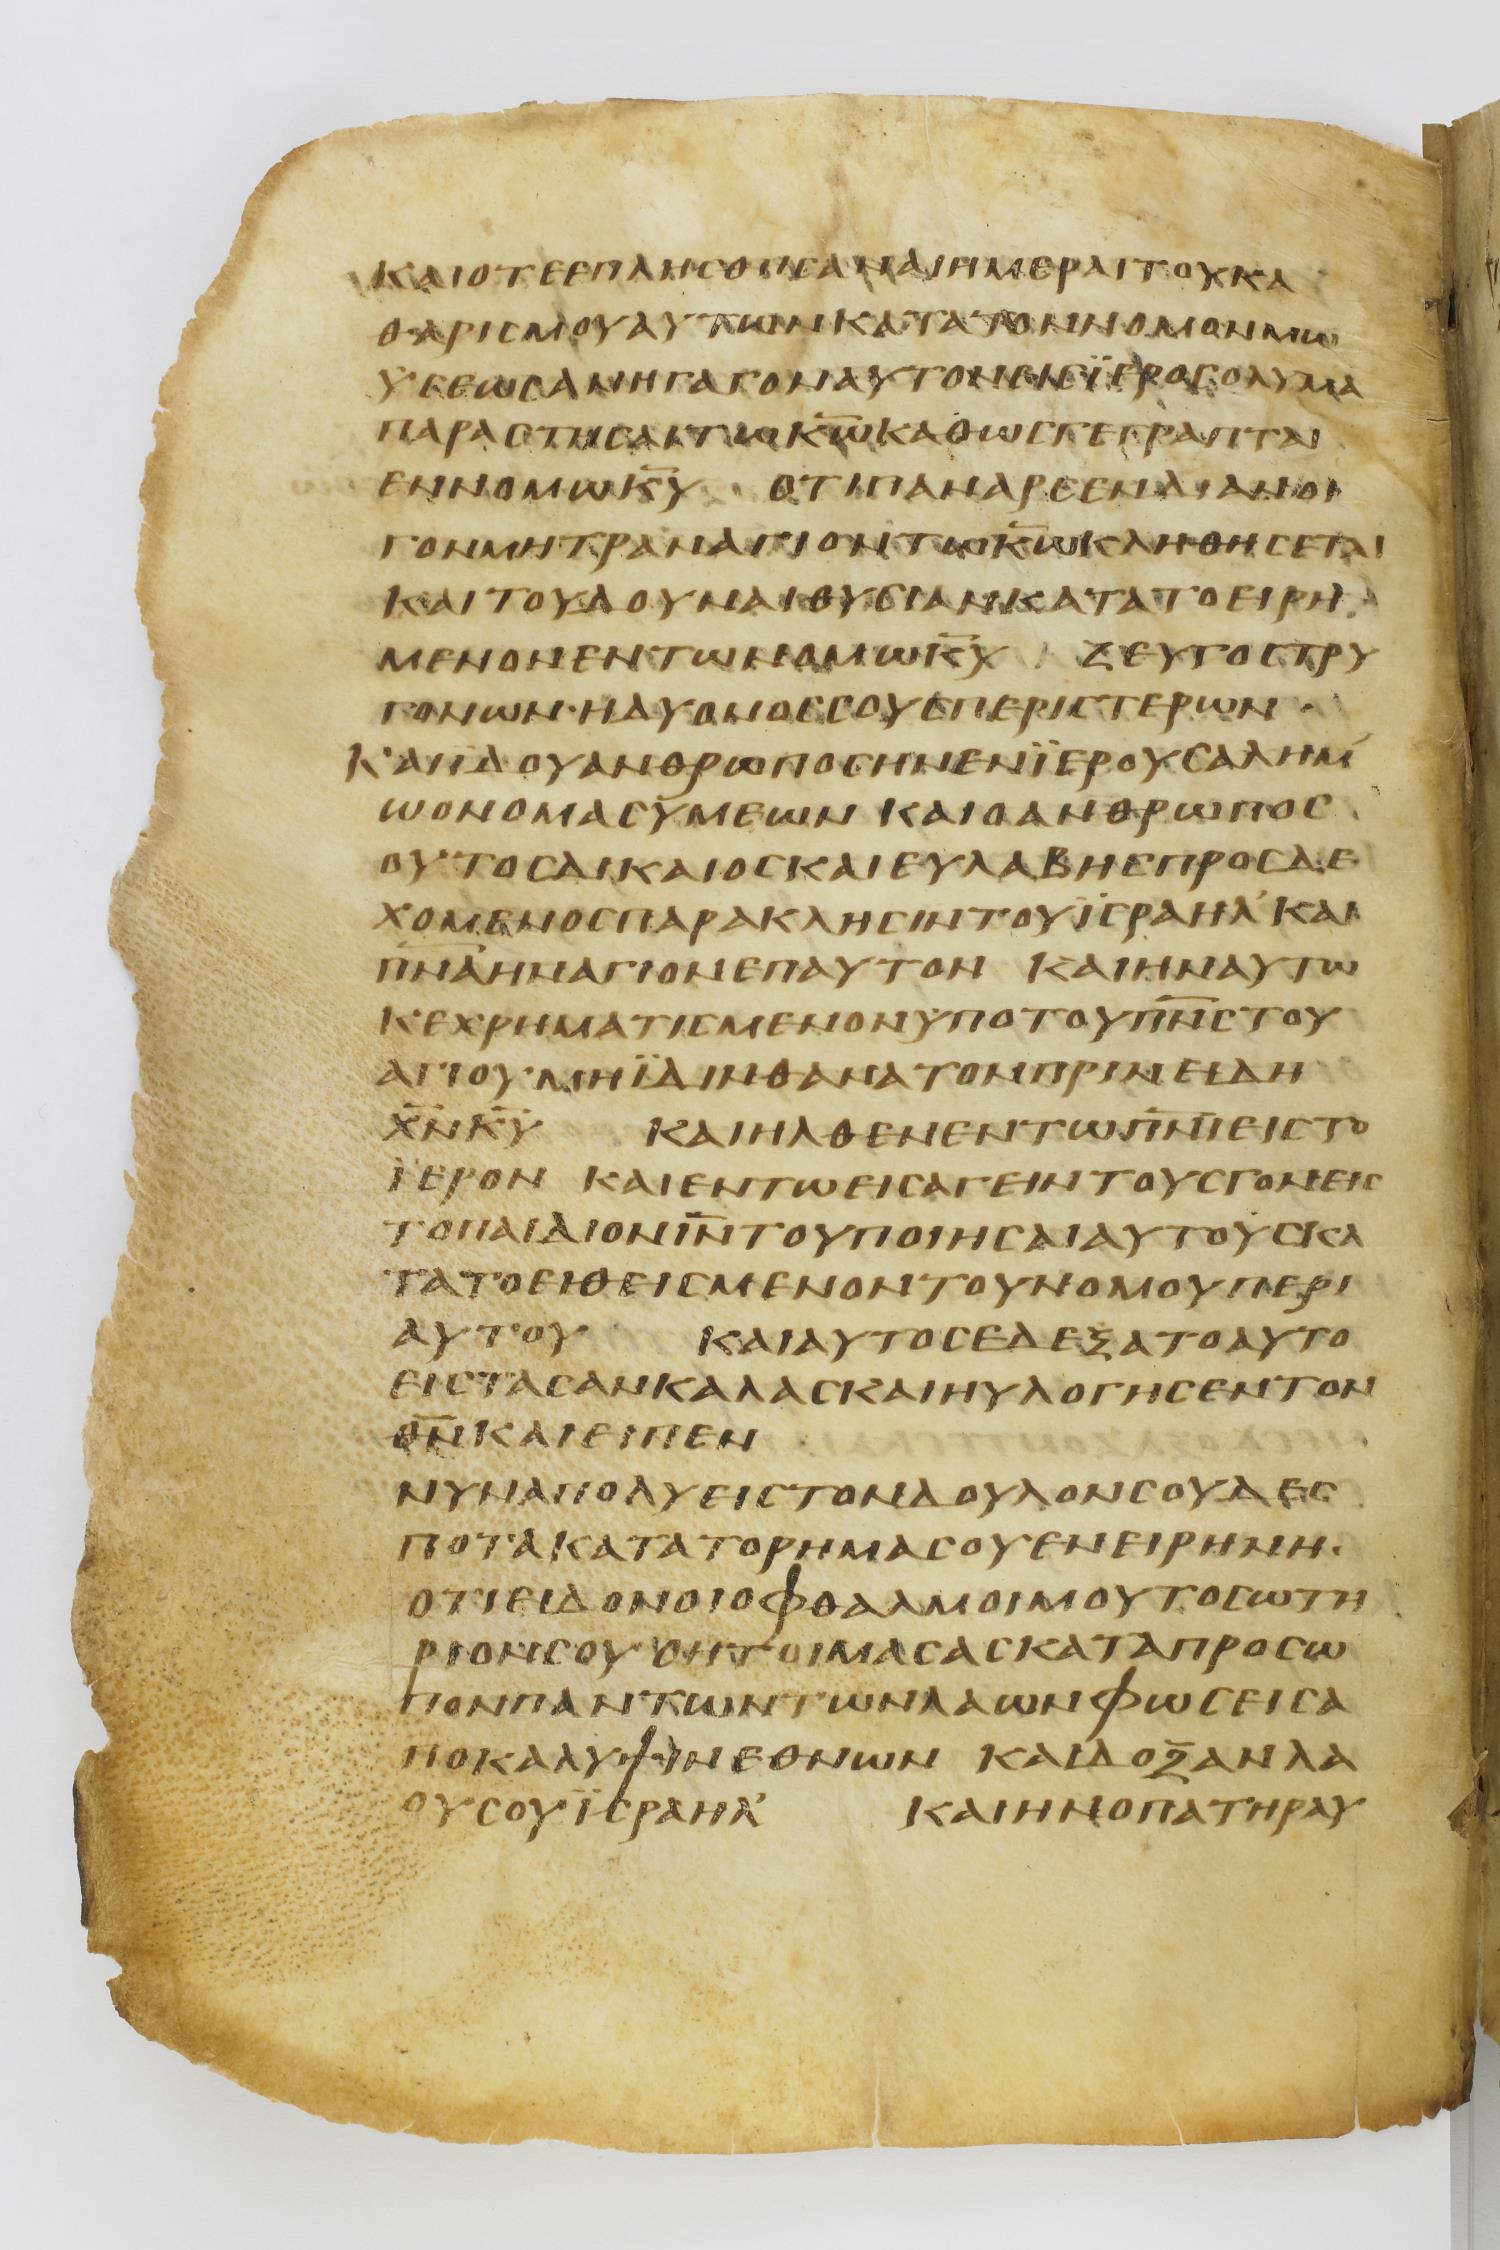 ΚΑΙΟΤΕΕΠΛΗСΘΗСΑΝΑΙΗΜΕΡΑΙΤΟΥΚΑ
ΘΑΡΙСΜΟΥΑΥΤΩΝΚΑΤΑΤΟΝΝΟΜΟΝΜΩ
ΫСΕΩСΑΝΗΓΑΓΟΝΑΥΤΟΝΕΙСΪΕΡΟСΟΛΥΜΑ
ΠΑΡΑСΤΗСΑΙΤΩΚ̅Ω̅ΚΑΘΩСΓΕΓΡΑΠΤΑΙ
ΕΝΝΟΜΩΚ̅Υ̅ ΟΤΙΠΑΝΑΡСΕΝΔΙΑΝΟΙ
ΓΟΝΜΗΤΡΑΝΑΓΙΟΝΤΩΚ̅Ω̅ΚΛΗΘΗСΕΤΑΙ
ΚΑΙΤΟΥΔΟΥΝΑΙΘΥСΙΑΝΚΑΤΑΤΟΕΙΡΗ
ΜΕΝΟΝΕΝΤΩΝΟΜΩΚ̅Υ̅ ΖΕΥΓΟСΤΡΥ
ΓΟΝΩΝ·ΗΔΥΟΝΟССΟΥСΠΕΡΙСΤΕΡΩΝ·
ΚΑΙΙΔΟΥΑΝΘΡΩΠΟСΗΝΕΝΪΕΡΟΥСΑΛΗΜ᾽
ΩΟΝΟΜΑСΥΜΕΩΝ ΚΑΙΟΑΝΘΡΩΠΟС
ΟΥΤΟСΔΙΚΑΙΟСΚΑΙΕΥΛΑΒΗСΠΡΟСΔΕ
ΧΟΜΕΝΟСΠΑΡΑΚΛΗСΙΝΤΟΥΪСΡΑΗΛ᾽ΚΑΙ
Π̅Ν̅Α̅ΗΝΑΓΙΟΝΕΠΑΥΤΟΝ ΚΑΙΗΝΑΥΤΩ
ΚΕΧΡΗΜΑΤΙСΜΕΝΟΝΥΠΟΤΟΥΠ̅Ν̅С̅ΤΟΥ
ΑΓΙΟΥΜΗΪΔΙΝΘΑΝΑΤΟΝΠΡΙΝΕΙΔΗ
Χ̅Ν̅Κ̅Υ̅ ΚΑΙΗΛΘΕΝΕΝΤΩΠ̅Ν̅Ι̅ΕΙСΤΟ
ΪΕΡΟΝ ΚΑΙΕΝΤΩΕΙСΑΓΕΙΝΤΟΥСΓΟΝΕΙС
ΤΟΠΑΙΔΙΟΝΙ̅Ν̅ΤΟΥΠΟΙΗСΑΙΑΥΤΟΥСΚΑ
ΤΑΤΟΕΙΘΕΙСΜΕΝΟΝΤΟΥΝΟΜΟΥΠΕΡΙ
ΑΥΤΟΥ ΚΑΙΑΥΤΟСΕΔΕΞΑΤΟΑΥΤΟ
ΕΙСΤΑСΑΝΚΑΛΑСΚΑΙΗΥΛΟΓΗСΕΝΤΟΝ
Θ̅Ν̅ΚΑΙΕΙΠΕΝ
ΝΥΝΑΠΟΛΥΕΙСΤΟΝΔΟΥΛΟΝСΟΥΔΕС
ΠΟΤΑΚΑΤΑΤΟΡΗΜΑСΟΥΕΝΕΙΡΗΝΗ·
ΟΤΙΕΙΔΟΝΟΙΟΦΘΑΛΜΟΙΜΟΥΤΟСΩΤΗ
ΡΙΟΝСΟΥΟΗΤΟΙΜΑСΑСΚΑΤΑΠΡΟСΩ
ΠΟΝΠΑΝΤΩΝΤΩΝΛΑΩΝΦΩСΕΙСΑ
ΠΟΚΑΛΥΨΙΝΕΘΝΩΝ ΚΑΙΔΟΞΑΝΛΑ
ΟΥСΟΥΪСΡΑΗΛ᾽ ΚΑΙΗΝΟΠΑΤΗΡΑΥ